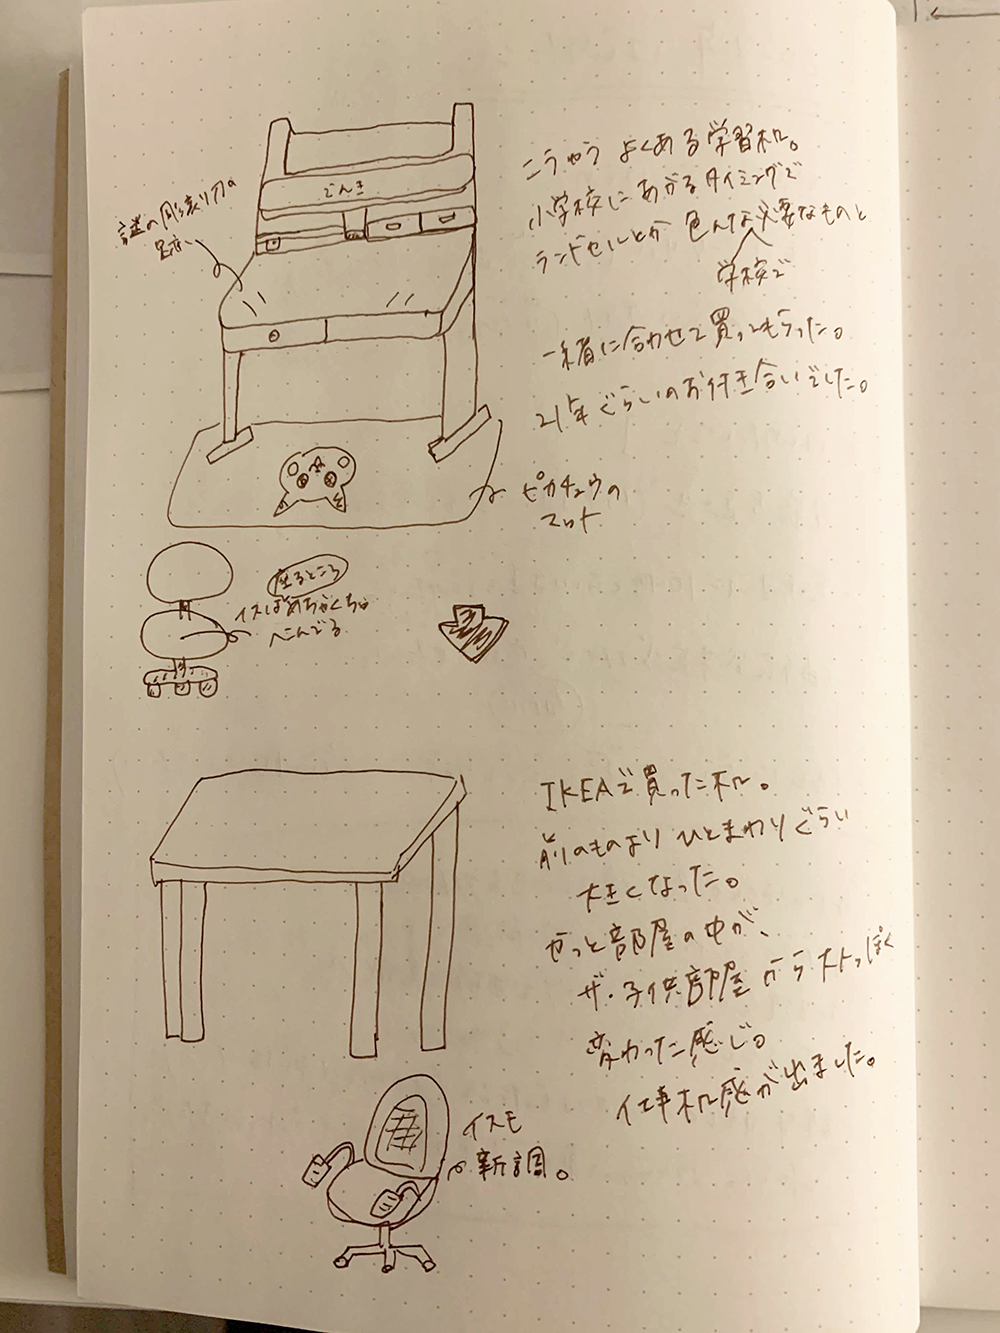 こうゆう よくある学習机。
小学校にあがるタイミングで
ランドセルとか 色んな必要なものと
学校で
一緒に合わせて買ってもらった。
21年ぐらいのお付き合いでした。
でんき
謎の彫刻刀の
跡
ピカチュウの
マット
座るところ
イスはめちゃくちゃ
へこんでる
IKEAで買った机。
前のものより ひとまわりぐらい
大きくなった。
やっと部屋の中が、
ザ・子供部屋 から 大人っぽく
変わった感じ。
仕事机感が出ました。
イスも
新調。